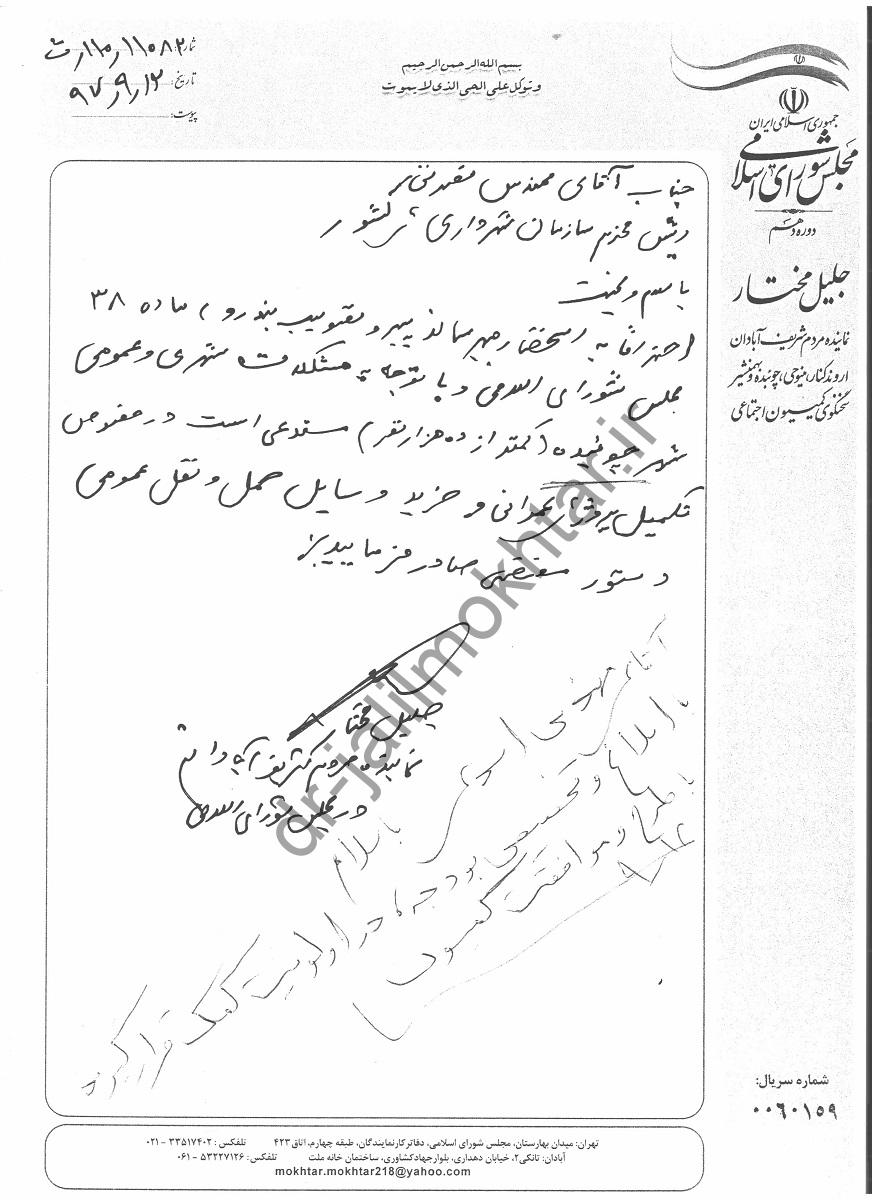 شماره: ۱۱۰۸۲/۱۱۰/ت
تاریخ: ۹۷/۹/۱۲
پیوست:
بسم الله الرحمن الرحیم
وتوکل علی الحی الذی لا یموت
جمهوری اسلامی ایران
مجلس شورای اسلامی
دوره دهم
جلیل مختار
نماینده مردم شریف آبادان
اروندکنار، منوحی، چوئبده و بهمنشیر
سخنگوی کمیسیون اجتماعی
جناب آقای مهندس
رئیس محترم سازمان شهرداری های کشور
با سلام و محبت
احتراماً به استحضار میرساند پیرو بند و ماده ۳۸
مجلس شورای اسلامی و با توجه به مشکلات شهری و عمومی
شهر چوئبده (کمتر از ده هزار نفر) مستدعی است در خصوص
تکمیل پروژه های عمرانی و خرید وسایل حمل و نقل عمومی
دستور مقتضی صادر فرمایید
جلیل مختار
نماینده مردم شریف آبادان
در مجلس شورای اسلامی
آقای مهندس
با سلام
با ابلاغ و تخصیص بودجه در اولویت کمک قرار گیرد
با طرح و موافقت کمیسیون
۹/۱۲
dr-jalilmokhtar.ir
شماره سریال:
۰۰۶۰۱۵۹
تهران: میدان بهارستان، مجلس شورای اسلامی، دفاتر کار نمایندگان، طبقه چهارم، اتاق ۴۲۳ تلفکس: ۳۳۵۱۷۴۰۲ - ۰۲۱
آبادان: تانکی۲، خیابان دهداری، بلوار جهاد کشاورزی، ساختمان خانه ملت تلفکس: ۵۳۲۲۷۱۲۶ - ۰۶۱
mokhtar.mokhtar218@yahoo.com